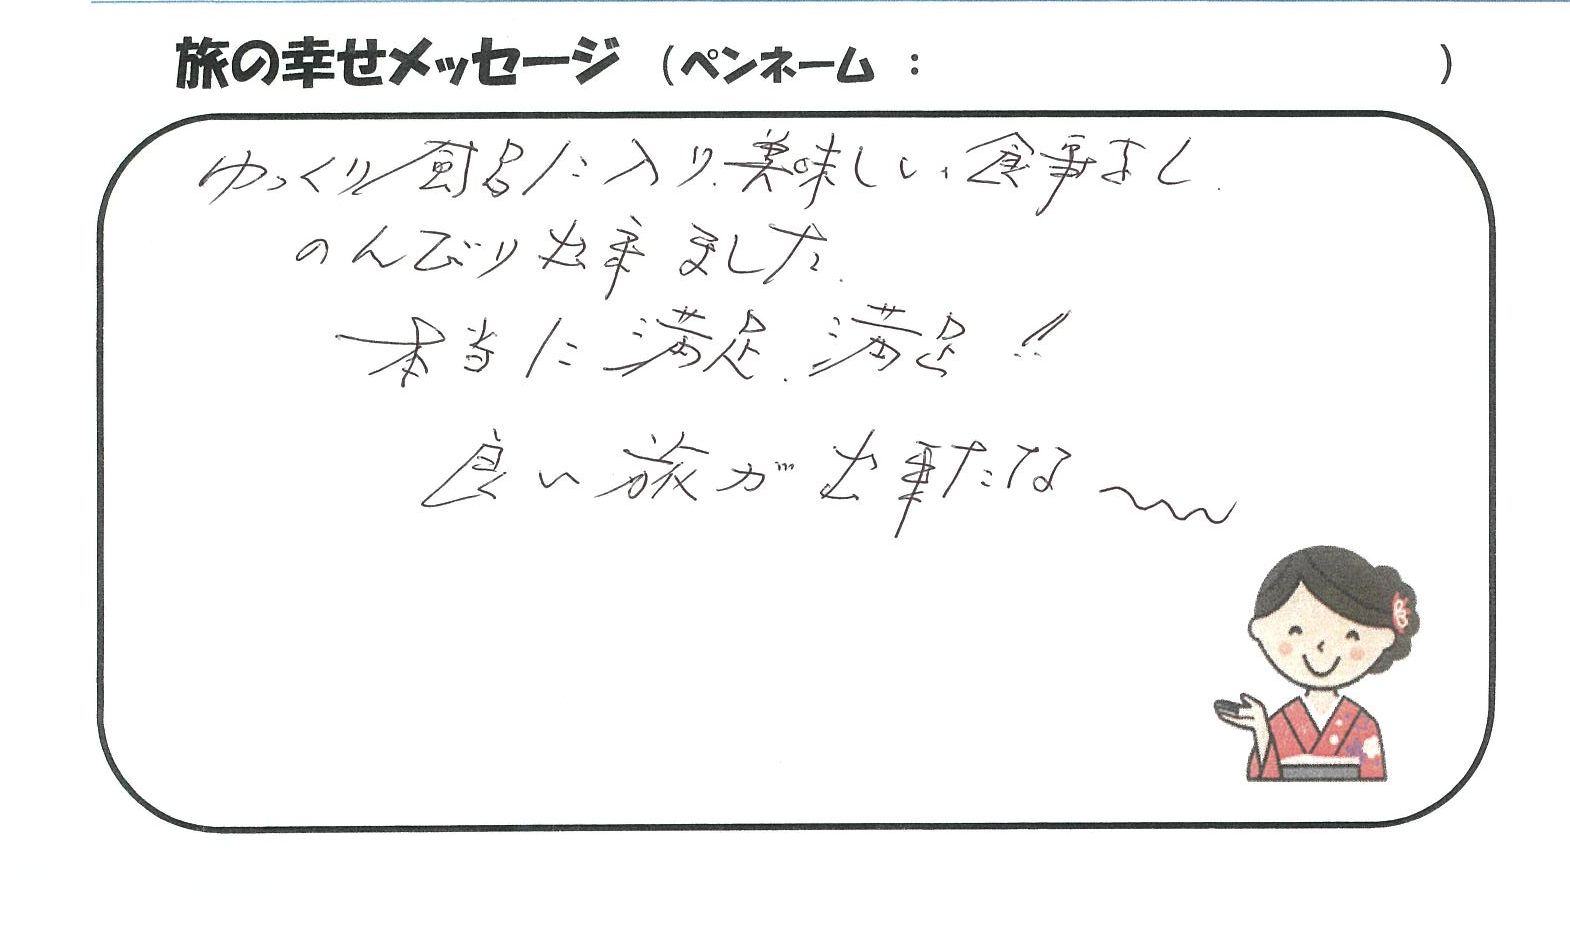 旅の幸せメッセージ (ペンネーム : )
ゆっくり風呂に入り、美味しい食事をし
のんびり出来ました。
本当に満足、満足!!
良い旅が出来たな〜